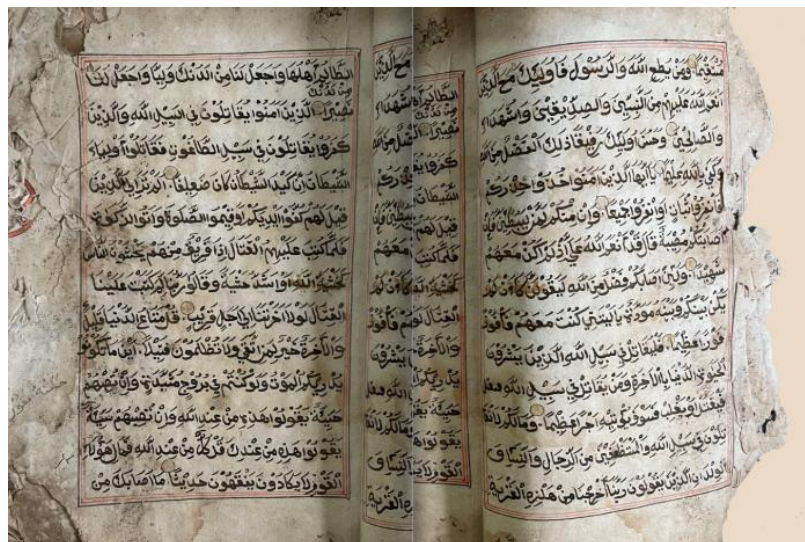 مستقيما ومن يطع الله والرسول فاوليك مع الذين
انعم الله عليهم من النبيين والصديقين والشهداء
والصالحين وحسن اوليك رفيقا ذلك الفضل من الله
وكفى بالله عليما يايها الذين امنوا خذوا حذركم
فانفروا ثبات اوانفروا جميعا وان منكم لمن ليبطين فان
اصابتكم مصيبة قال قد انعم الله علي اذ لم اكن معهم
شهيدا ولين اصابكم فضل من الله ليقولن كان لم
يكن بينكم وبينه مودة ياليتني كنت معهم فافوز
فوزا عظيما فليقاتل في سبيل الله الذين يشرون
الحيوة الدنيا بالاخرة ومن يقاتل في سبيل الله
فيقتل اويغلب فسوف نوتيه اجرا عظيما ومالكم لا تقا
تلون في سبيل الله والمستضعفين من الرجال والنساء
والولدان الذين يقولون ربنا اخرجنا من هذه القرية
الظالم اهلها واجعل لنا من لدنك وليا واجعل لنا
من لدنك
نصيرا الذين امنوا يقاتلون في سبيل الله والذين
كفروا يقاتلون في سبيل الطاغوت فقاتلوا اولياء
الشيطان ان كيد الشيطان كان ضعيفا الم تر الى الذين
قيل لهم كفوا ايديكم واقيموا الصلوة واتوا الزكوة
فلما كتب عليهم القتال اذا فريق منهم يخشون الناس
كخشية الله او اشد خشية وقالوا ربنا لم كتبت علينا
القتال لولا اخرتنا الى اجل قريب قل متاع الدنيا قليل
والاخرة خير لمن اتقى ولا تظلمون فتيلا اين ما تكونوا
يدرككم الموت ولو كنتم في بروج مشيدة وان تصبهم
حسنة يقولوا هذه من عند الله وان تصبهم سيئة
يقولوا هذه من عندك قل كل من عند الله فمال هؤلاء
القوم لا يكادون يفقهون حديثا ما اصابك من